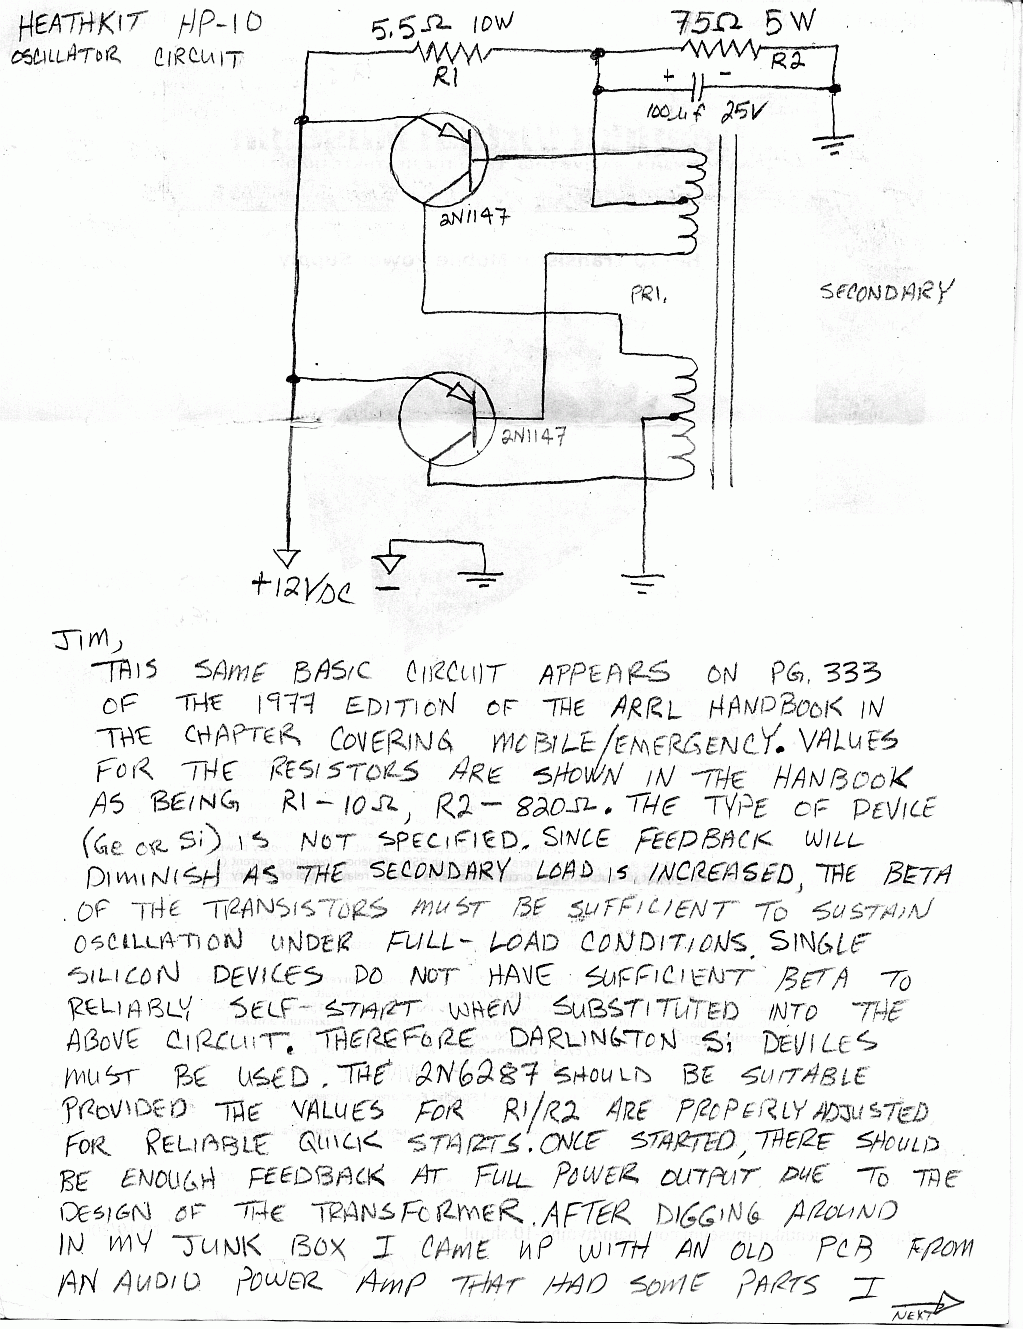 HEATHKIT HP-10
OSCILLATOR CIRCUIT
5.5Ω 10W
R1
75Ω 5W
R2
+ -
100µf 25V
2N1147
PRI.
SECONDARY
2N1147
+12VDC
-
JIM,
THIS SAME BASIC CIRCUIT APPEARS ON PG. 333
OF THE 1977 EDITION OF THE ARRL HANDBOOK IN
THE CHAPTER COVERING MOBILE/EMERGENCY. VALUES
FOR THE RESISTORS ARE SHOWN IN THE HANBOOK
AS BEING R1-10Ω, R2-820Ω. THE TYPE OF DEVICE
(Ge OR Si) IS NOT SPECIFIED. SINCE FEEDBACK WILL
DIMINISH AS THE SECONDARY LOAD IS INCREASED, THE BETA
OF THE TRANSISTORS MUST BE SUFFICIENT TO SUSTAIN
OSCILLATION UNDER FULL-LOAD CONDITIONS. SINGLE
SILICON DEVICES DO NOT HAVE SUFFICIENT BETA TO
RELIABLY SELF-START WHEN SUBSTITUTED INTO THE
ABOVE CIRCUIT. THEREFORE DARLINGTON Si DEVICES
MUST BE USED. THE 2N6287 SHOULD BE SUITABLE
PROVIDED THE VALUES FOR R1/R2 ARE PROPERLY ADJUSTED
FOR RELIABLE QUICK STARTS. ONCE STARTED, THERE SHOULD
BE ENOUGH FEEDBACK AT FULL POWER OUTPUT DUE TO THE
DESIGN OF THE TRANSFORMER. AFTER DIGGING AROUND
IN MY JUNK BOX I CAME UP WITH AN OLD PCB FROM
AN AUDIO POWER AMP THAT HAD SOME PARTS I
NEXT